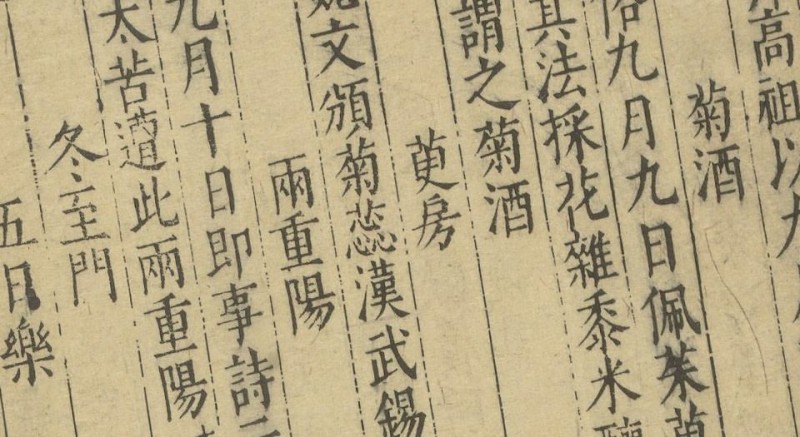 高祖以九
菊酒
俗九月九日佩茱萸
其法採花雜黍米釀
謂之菊酒
萸房
文頒菊蕊漢武錫
兩重陽
九月十日即事詩云
太苦遭此兩重陽
冬至門
五日樂